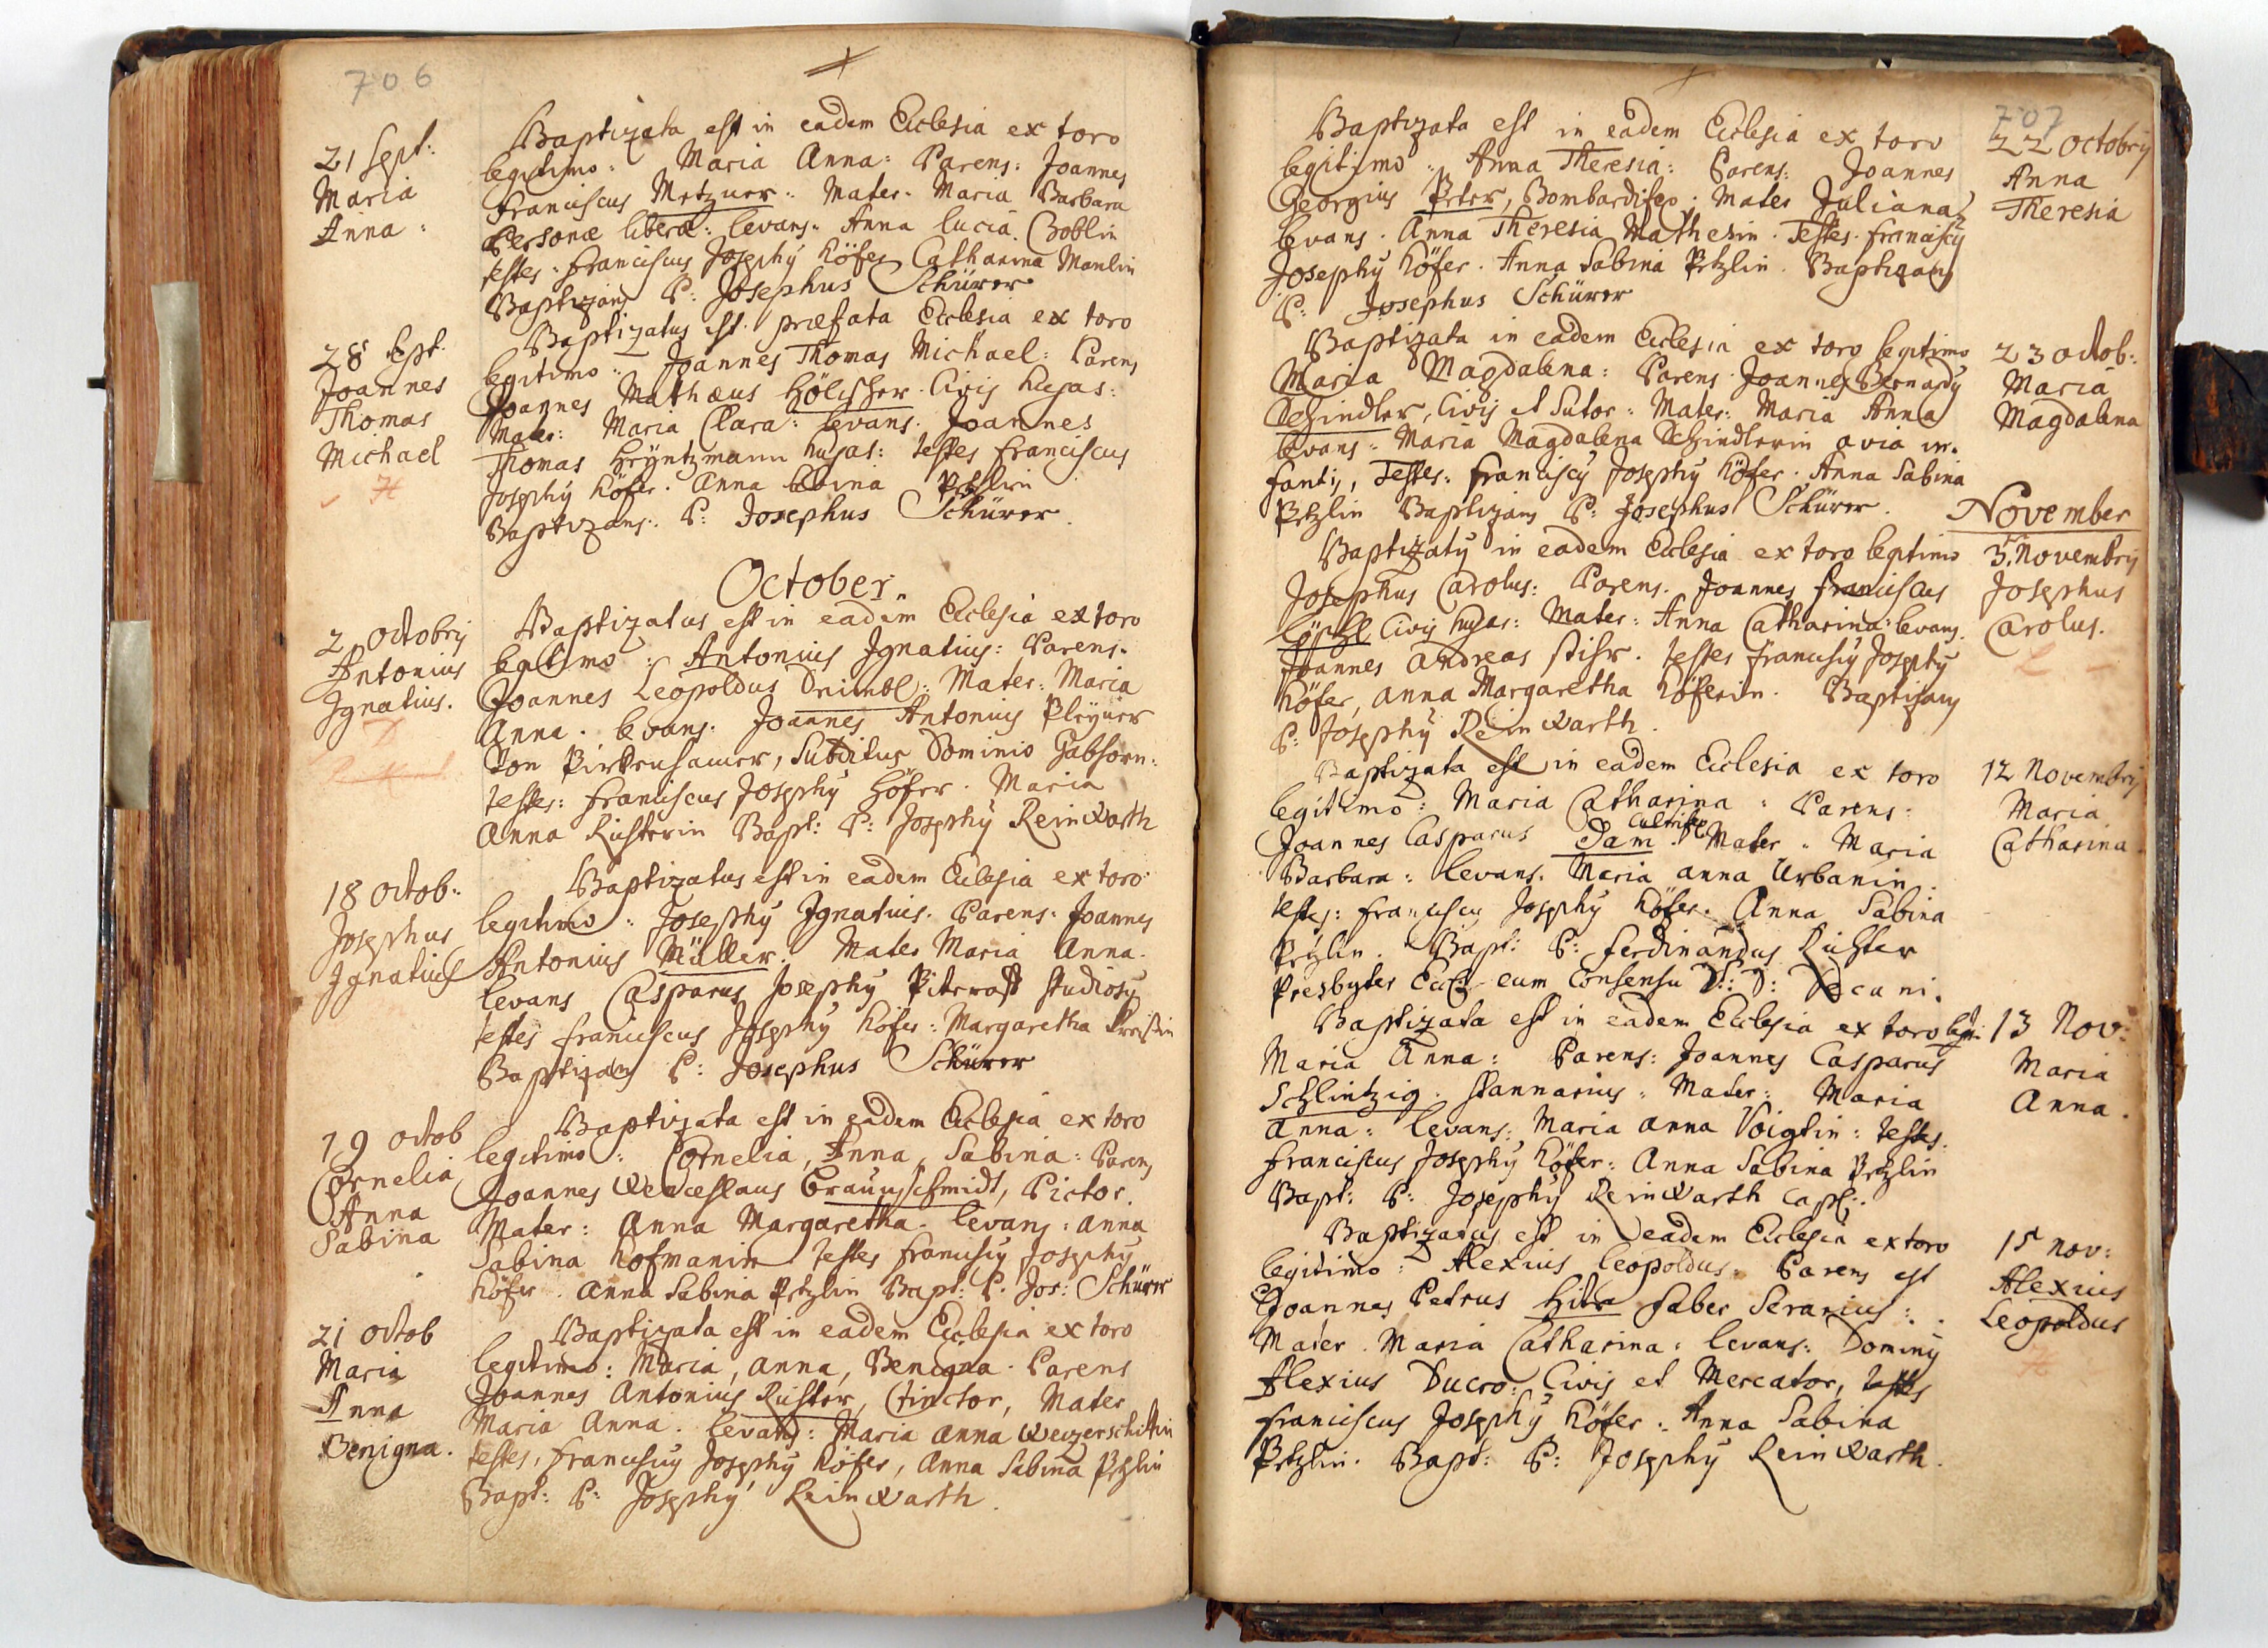 706
21 Sept:
Maria
Anna:
Baptizata est in eadem Ecclesia ex toro
legitimo: Maria Anna: Parens: Joannes
Franciscus Metzner: Mater: Maria Barbara
Personæ liberæ: levans: Anna Lucia
testes: Franciscus Josephy Höfer Catharina Manlin
Baptizans P: Josephus Schürer
28 Sept.
Joannes
Thomas
Michael
H
Baptizatus est præfata Ecclesia ex toro
legitimo: Joannes Thomas Michael: Parens
Joannes Mathæus Hölscher Civis hujas:
Mater: Maria Clara: levans: Joannes
Thomas hujas: testes Franciscus
Josephy Höfer. Anna Sabina Petzlin
Baptizans: P: Josephus Schürer.
October.
2 Octobris
Antonius
Ignatius.
D
Baptizatus est in eadem Ecclesia ex toro
legitimo: Antonius Ignatius: Parens.
Joannes Leopoldus: Mater: Maria
Anna. levans: Joannes Antonius Pleyner
Von Pirkenhamer, Subditus Dominio
testes: Franciscus Josephy Höfer. Maria
Anna Richterin Bapt: P: Josephy Reinwarth
18 Octob:
Josephus
Ignatius
Baptizatus est in eadem Eclesia ex toro
legitimo: Josephy Ignatius. Parens: Joannes
Antonius Müller. Mater Maria Anna.
levans Casparus Josephy studiosy
testes Franciscus Josephy Höfer: Margaretha
Baptizans P: Josephus Schürer
19 Octob
Cornelia
Anna
Sabina
Baptizata est in eadem Ecclesia ex toro
legitimo: Cornelia, Anna, Sabina: Parens
Joannes Wenceslaus Braunschmidt, Pictor.
Mater: Anna Margaretha. levans: Anna
Sabina Hofmanin testes Franciscy Josephy
Höfer. Anna Sabina Petzlin Bapt: P. Jos: Schürer
21 Octob
Maria
Anna
Benigna.
Baptizata est in eadem Ecclesia ex toro
legitimo: Maria, Anna, Benigna. Parens
Joannes Antonius Richter, tinctor, Mater
Maria Anna. levans: Maria Anna
testes, Franciscus Josephy Höfer, Anna Sabina Petzlin
Bapt: P: Josephy Reinwarth.
707
22 Octobris
Anna
Theresia
Baptizata est in eadem Ecclesia ex toro
legitimo: Anna Theresia: Parens: Joannes
Georgius Peter, Bombardifex: Mater Juliana
levans. Anna Theresia Mathesin. Testes. Franciscy
Josephy Höfer. Anna Sabina Petzlin. Baptizans
P: Josephus Schürer
23 Octob:
Maria
Magdalena
Baptizata in eadem Ecclesia ex toro legitimo
Maria Magdalena: Parens. Joannes Bernardy
Schindler, Civis et Sutor: Mater: Maria Anna
levans: Maria Magdalena Schindlerin avia in-
fantis, Testes: Franciscy Josephy Höfer. Anna Sabina
Petzlin Baptizans P: Josephus Schürer.
November
3. Novembris
Josephus
Carolus.
L
Baptizaty in eadem Ecclesia ex toro legitimo
Josephus Carolus: Parens. Joannes Franciscus
Löschl Civis hujas: Mater: Anna Catharina: levans.
Joannes Andreas. testes Franciscy Josephy
Höfer, Anna Margaretha Höferin. Baptizans
P: Josephy Reinwarth.
12 Novembris
Maria
Catharina
Baptizata est in eadem Ecclesia ex toro
legitimo: Maria Catharina: Parens:
Joannes Casparus Dam Cultrifex. Mater: Maria
Barbara: levans: Maria Anna Urbanin.
testes: Franciscus Josephy Höfer. Anna Sabina
Petzlin. Bapt: P: Ferdinandus Richter
Presbyter Eccl: cum Consensu D: D: Decani.
13 Nov:
Maria
Anna.
Baptizata est in eadem Ecclesia ex toro legit:
Maria Anna: Parens: Joannes Casparus
Schlintzig. Stannarius: Mater: Maria
Anna: levans: Maria Anna Voigtin: testes.
Franciscus Josephy Höfer: Anna Sabina Petzlin
Bapt: P: Josephy Reinwarth Capl:.
15 Nov:
Alexius
Leopoldus
H
Baptizatus est in eadem Ecclesia ex toro
legitimo: Alexius Leopoldus: Parens est
Joannes Petrus faber Serarius:
Mater. Maria Catharina: levans: Dominy
Alexius Ducro: Civis et Mercator, testes
Franciscus Josephy Höfer: Anna Sabina
Petzlin. Bapt: P: Josephy Reinwarth.